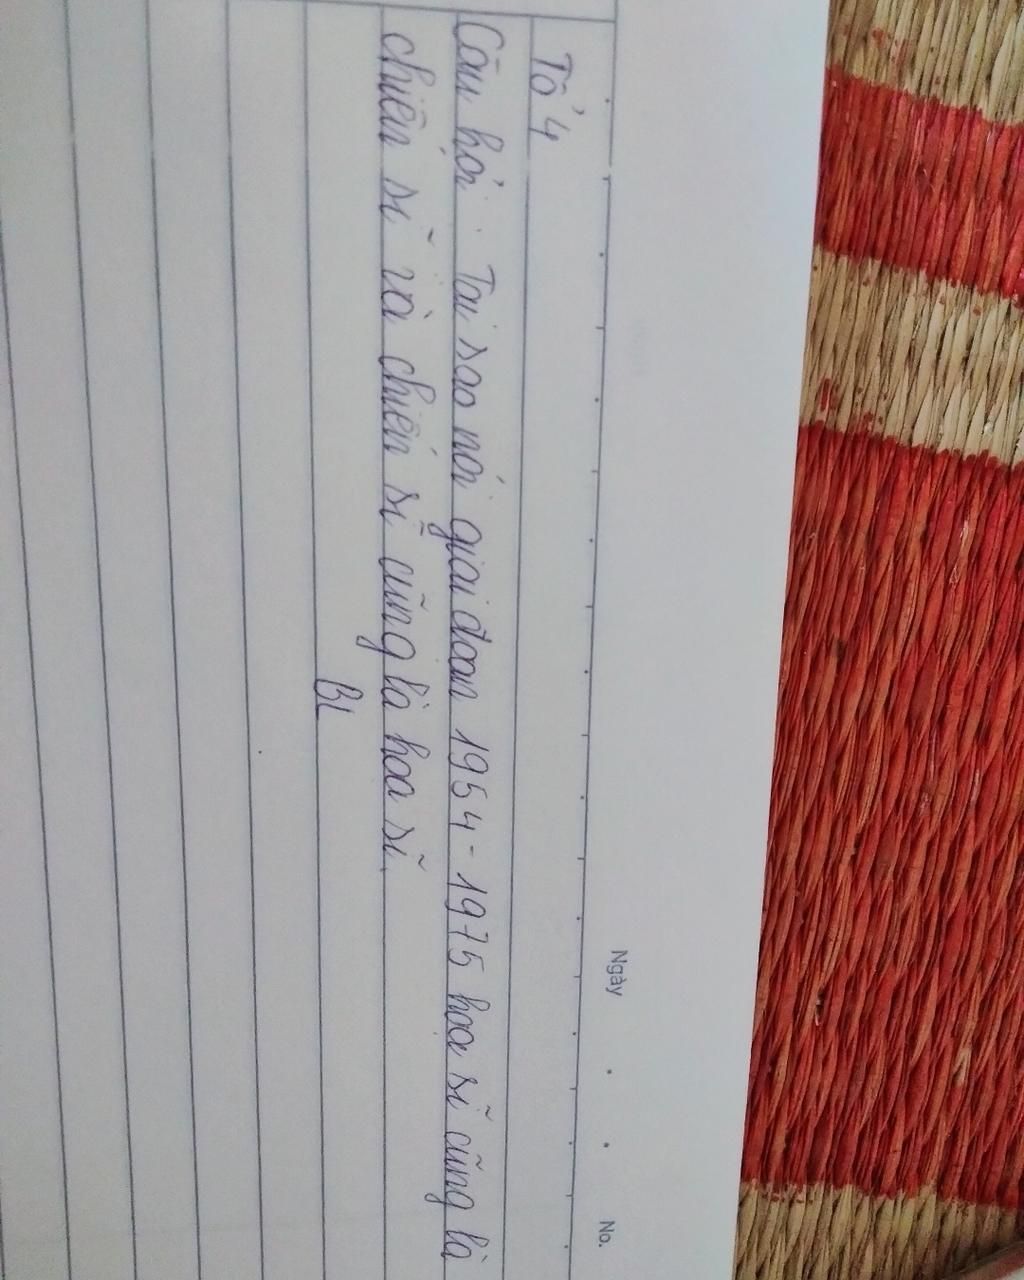 Ngày . . No.
Tổ 4
Câu hỏi : Tại sao nói giai đoạn 1954-1975 họa sĩ cũng là
chiến sĩ và chiến sĩ cũng là họa sĩ.
BL